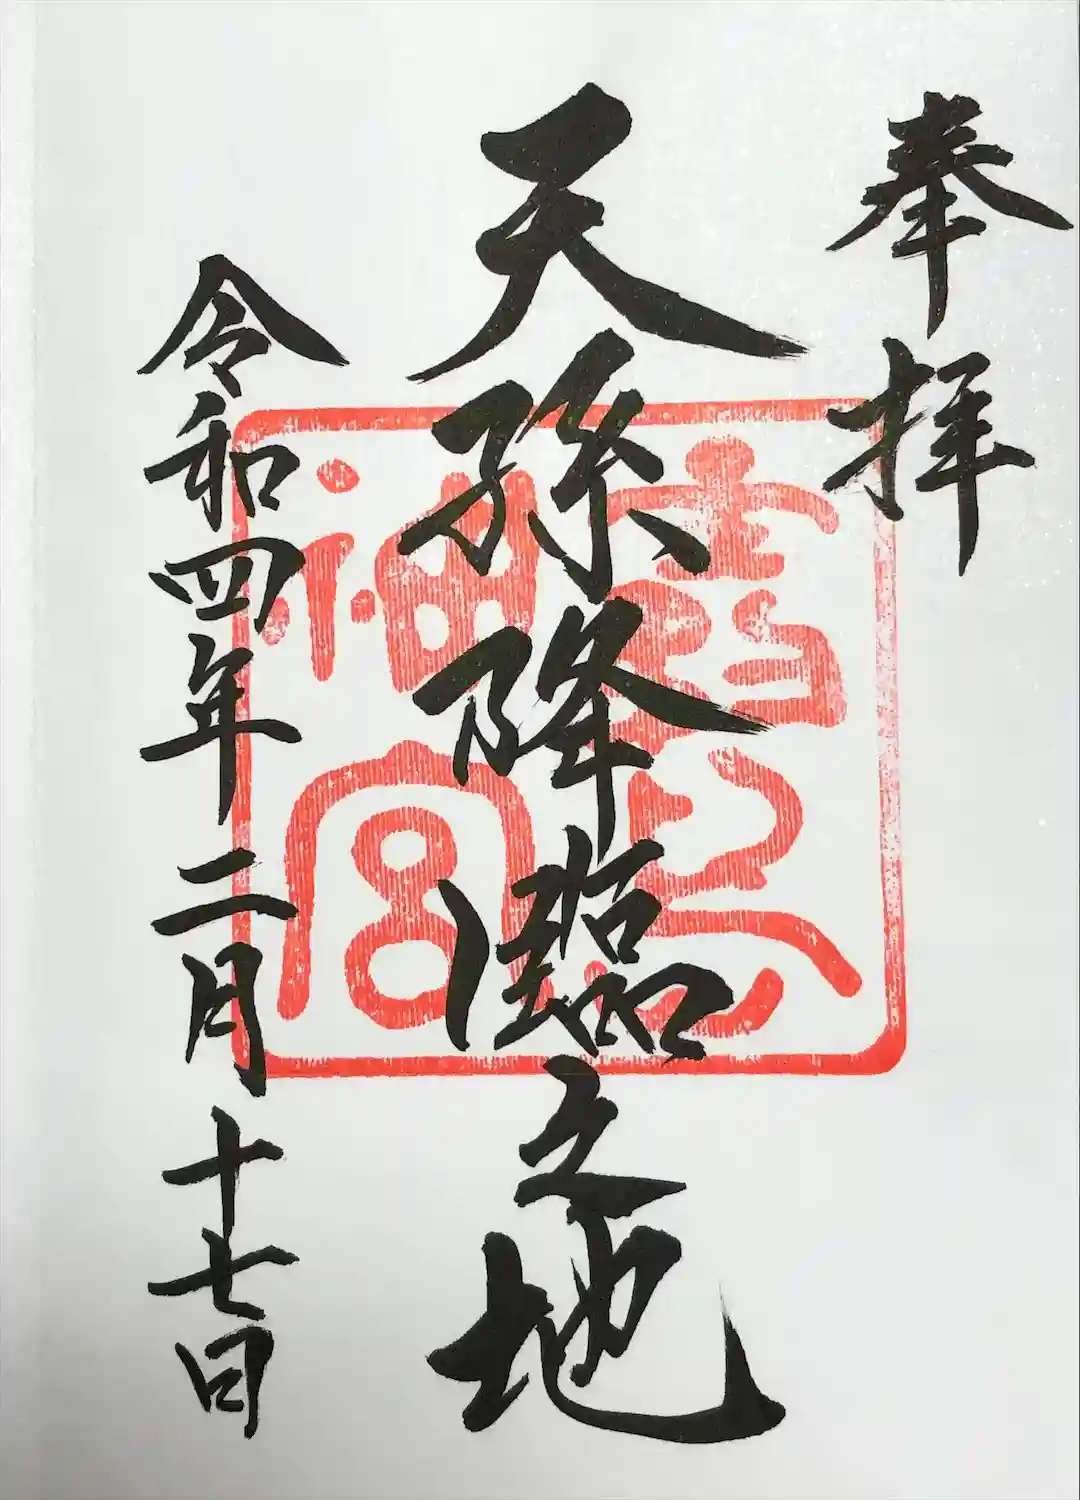 奉拝
天孫降臨之地
神宮
令和四年二月十七日